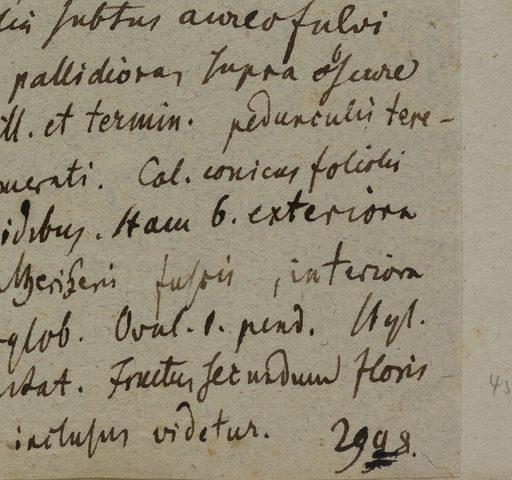 subtus aureofulvi
pallidiora, supra obscure
ill. et termin. pedunculis tere-
merati. Cal. conicus foliolis
idibus. Stam 6. exteriora
fuscis, interiora
glob. Oval. 1. pend. Styl.
stat. Fructus secundum floris
inclusus videtur. 2998.